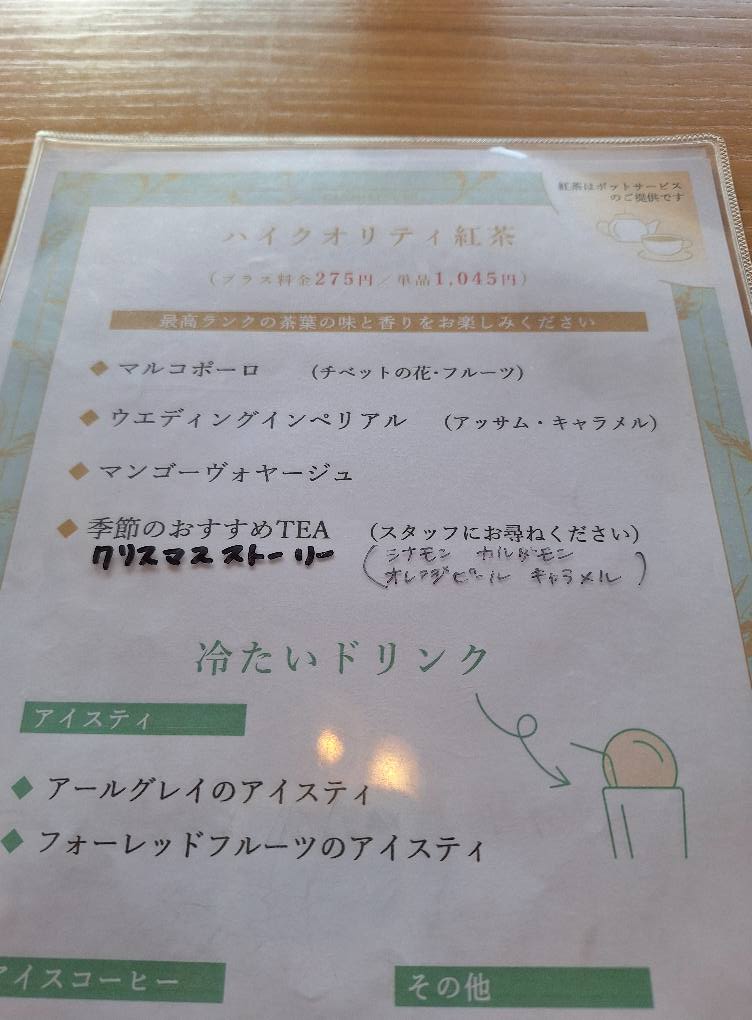 紅茶はポットサービス
のご提供です
ハイクオリティ紅茶
(プラス料金275円／単品1,045円)
最高ランクの茶葉の味と香りをお楽しみください
マルコポーロ (チベットの花・フルーツ)
ウエディングインペリアル (アッサム・キャラメル)
マンゴーヴォヤージュ
季節のおすすめTEA (スタッフにお尋ねください)
クリスマスストーリー (シナモン カルダモン
オレンジピール キャラメル)
冷たいドリンク
アイスティ
アールグレイのアイスティ
フォーレッドフルーツのアイスティ
アイスコーヒー その他